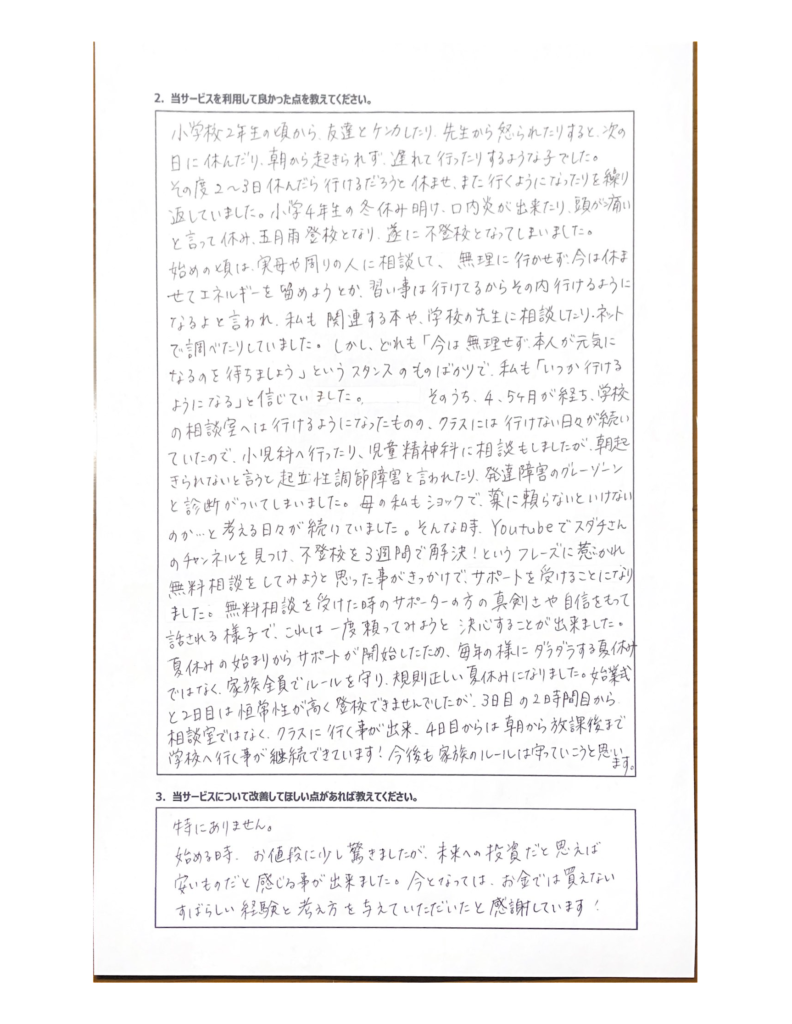 2. 当サービスを利用して良かった点を教えてください。
小学校2年生の頃から、友達とケンカしたり、先生から怒られたりすると、次の
日に休んだり、朝から起きられず、遅れて行ったりするような子でした。
その度2〜3日休んだら行けるだろうと休ませ、また行くようになったりを繰り
返していました。小学4年生の冬休み明け、口内炎が出来たり、頭が痛い
と言って休み、五月雨登校となり、遂に不登校となってしまいました。
始めの頃は、実母や周りの人に相談して、無理に行かせず、今は休ま
せてエネルギーを留めようとか、習い事は行けてるからその内行けるように
なるよと言われ、私も関連する本や、学校の先生に相談したり、ネット
で調べたりしていました。しかし、どれも「今は無理せず、本人が元気に
なるのを待ちましょう」というスタンスのものばかりで、私も「いつか行ける
ようになる」と信じていました。 そのうち、4、5ヶ月が経ち、学校
の相談室へは行けるようになったものの、クラスには行けない日々が続い
ていたので、小児科へ行ったり、児童精神科に相談もしましたが、朝起
きられないと言うと起立性調節障害と言われたり、発達障害のグレーゾーン
と診断がついてしまいました。母の私もショックで、薬に頼らないといけない
のか…と考える日々が続けていました。そんな時、Youtubeでスダチさん
のチャンネルを見つけ、不登校を3週間で解決！というフレーズに惹かれ
無料相談をしてみようと思った事がきっかけで、サポートを受けることになり
ました。無料相談を受けた時のサポーターの方の真剣さや自信をもって
話される様子で、これは一度頼ってみようと決心することが出来ました。
夏休みの始まりからサポートが開始したため、毎年の様にダラダラする夏休み
ではなく、家族全員でルールを守り、規則正しい夏休みになりました。始業式
と2日目は恒常性が高く登校できませんでしたが、3日目の2時間目から
相談室ではなく、クラスに行く事が出来、4日目からは朝から放課後まで
学校へ行く事が継続できています！今後も家族のルールは守っていこうと思い
ます。
3. 当サービスについて改善してほしい点があれば教えてください。
特にありません。
始める時、お値段に少し驚きましたが、未来への投資だと思えば
安いものだと感じる事が出来ました。今となっては、お金では買えない
すばらしい経験と考え方を与えていただいたと感謝しています！